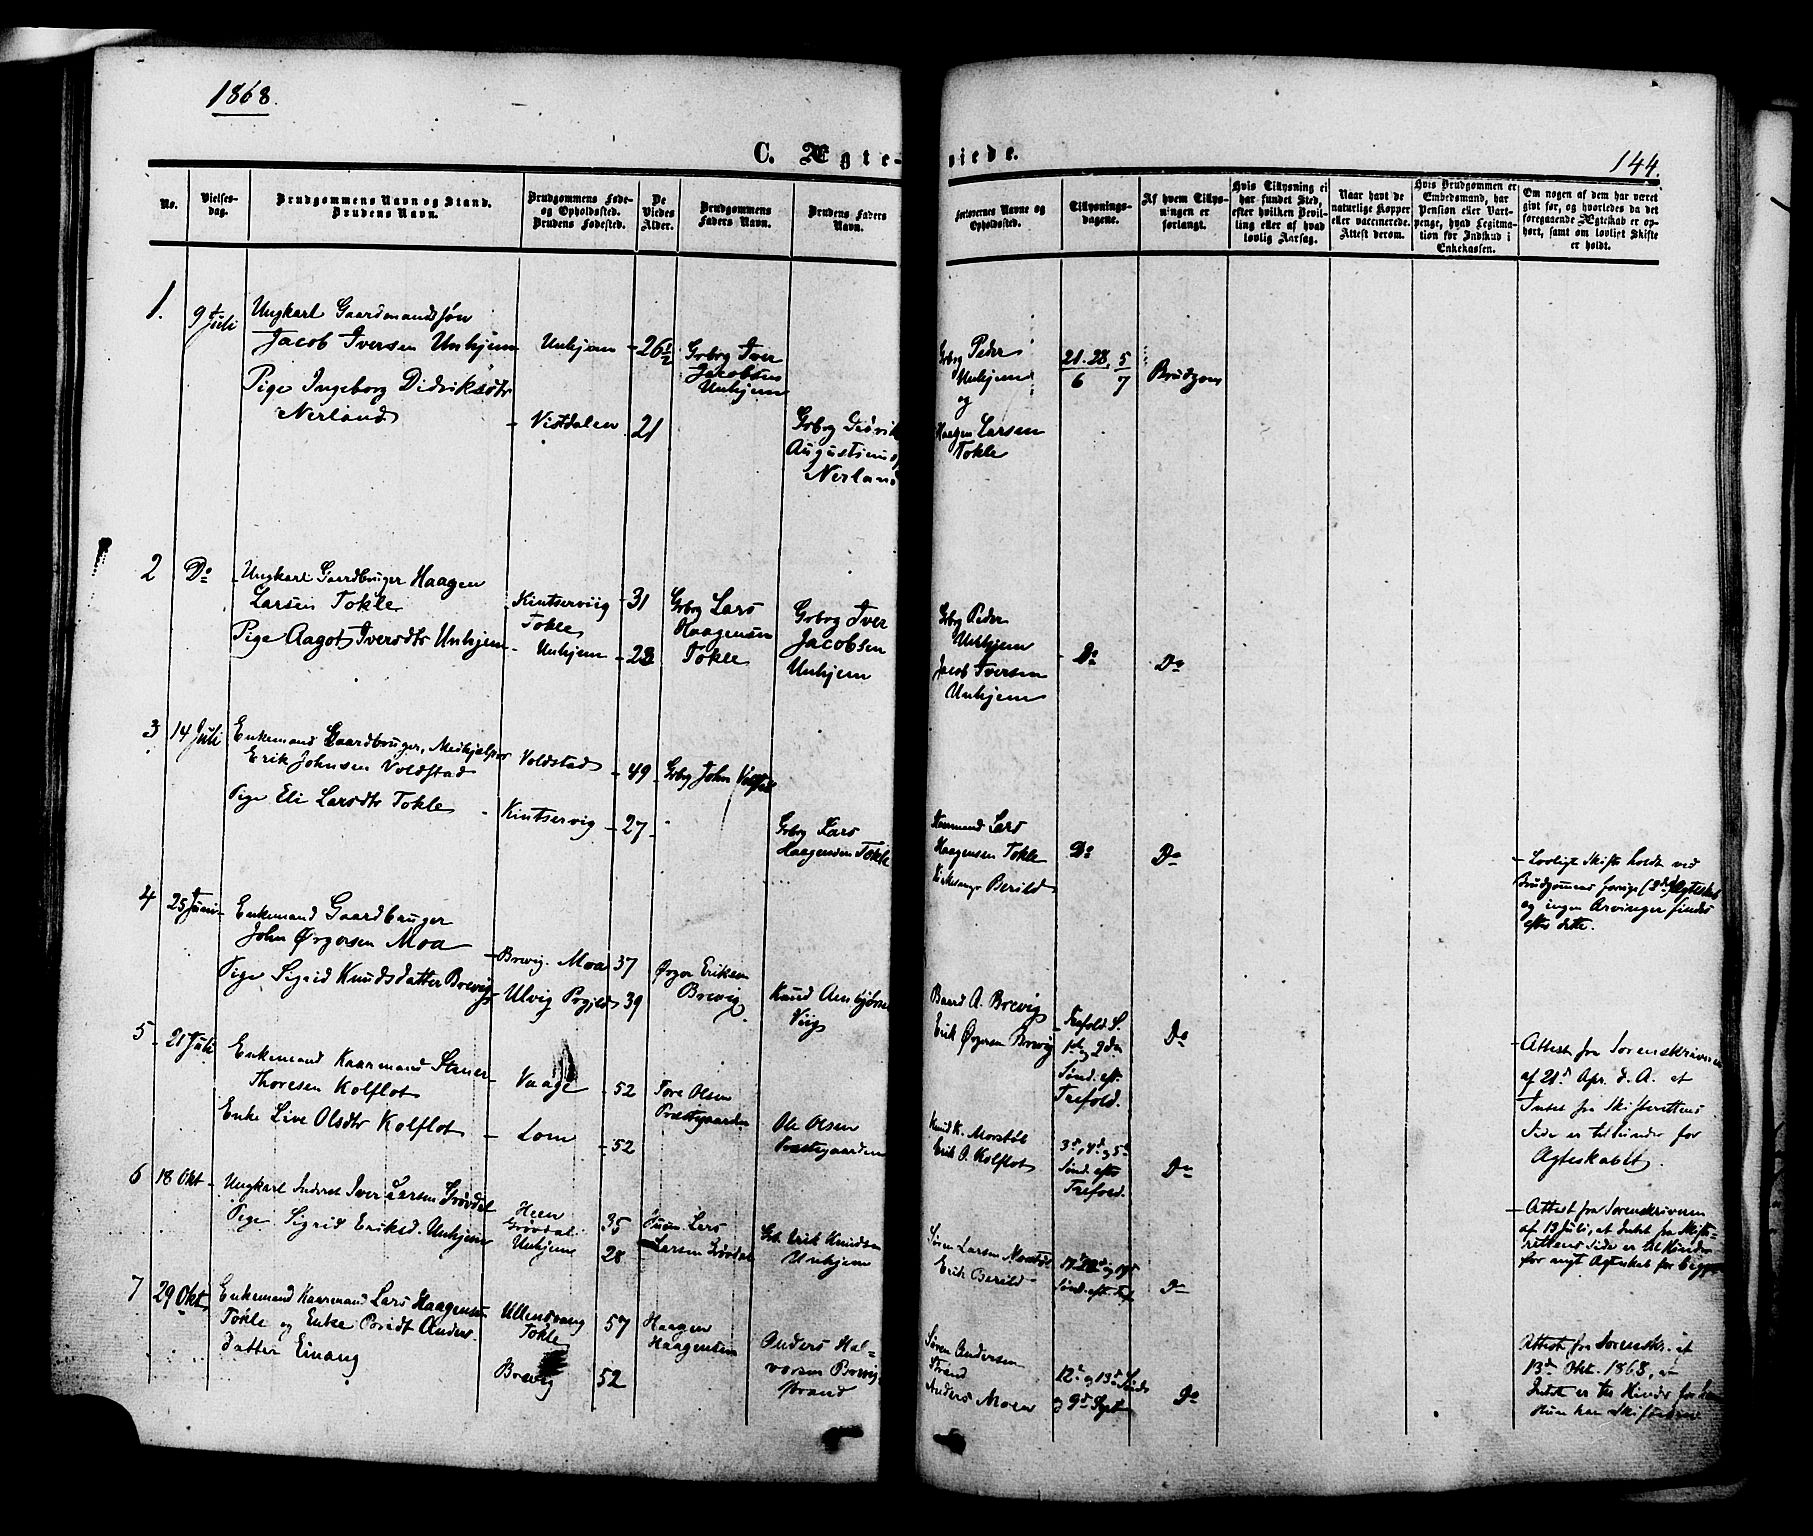 1868.
144.
C. Ægteviede.
No.
Vielses-
dag.
Brudgommens Navn og Stand.
Brudens Navn.
Brudgommens Føde-
og Opholdssted.
Brudens Fødested.
De
Viedes
Alder.
Brudgommens
Faders Navn.
Brudens Faders
Navn.
Forlovernes Navne og
Opholdssted.
Tillysnings-
dagene.
Af hvem Tillys-
ningen er
forlangt.
Hvis Tillysning ei
har fundet Sted,
efter hvilken Bevil-
ling eller af hvad
lovlig Aarsag.
Naar havt de
naturlige Kopper
eller vaccinerede.
Attest derom.
Hvis Brudgommen er
Embedsmand, har
Pension eller Vart-
penge, hvad Legitima-
tion for Indskud i
Enkekassen.
Om nogen af dem har været
givt før, og hvorledes da det
foregaaende Ægteskab er op-
hørt, samt om lovligt Skifte
er holdt.
1.
9 Juli
Ungkarl Gaardmandssøn
Jacob Iversen Unhjem
Pige Ingeborg Didriksdtr
Nerland
Unhjem
Vistdalen
26½
21
Grbrg Iver
Jacobsen
Unhjem
Grbrg Didrik
Augustinus
Nerland
Grbrg Peder
Unhjem
og
Haagen Larsen
Tokle
21. 28. 5
6 7
Brudgom
2
Do
Ungkarl Gaardbruger Haagen
Larsen Tokle
Pige Aagot Iversdtr Unhjem
Kintserviig
Tokle
Unhjem
31
23
Grbrg Lars
Haagensen
Tokle
Grbrg Iver
Jacobsen
Unhjem
Grbrg Peder
Unhjem
Jacob Iversen
Unhjem
Do
Do
3
14 Juli
Enkemand Gaardbruger, Medhjælper
Erik Johnsen Voldstad
Pige Eli Larsdtr Tokle
Voldstad
Kintservig
49
27
Grbrg John
Grbrg Lars
Haagensen Tokle
Lars
Haagensen Tokle
Kirkesanger Berild
Do
Do
Lovligt Skifte holdt ved
Brudgommens forrige (2det) Ægteskab
og ingen Arvinger findes
efter dette.
4
25 Juni
Enkemand Gaardbruger
John Ørgersen Moa
Pige Sigrid Knudsdatter Brevig
Brevig. Moa
Ulvig
37
39
Ørger Eriksen
Brevig
Knud
Viig
Baard A. Brevig
Erik Ørgersen Brevig
Trefold. S.
1ste og 2den
Sønd. eft.
Trefold.
Do
5
21 Juli
Enkemand Kaarmand
Thoresen Kolflot
Enke Live Olsdtr Kolflot
Vaage
Lom
52
52
Tore Olsen
Præstgaarden
Ole Olsen
Præstgaarden
Knud K. Morstøl
Erik O. Kolflot
3d, 4d og 5d
Sønd. efter
Trefold.
Do
Attest fra Sorenskriveren
af 21d Apr. d. A. at
Intet fra Skifterettens
Side er til Hinder for
Ægteskabet.
6
18 Okt
Ungkarl Inderst Iver Larsen Grøvdal
Pige Sigrid Eriksd. Unhjem
Heen
Grøvdal
Unhjem
35
28
Lars
Larsen Grøvdal
Grb. Erik Knudsen
Unhjem
Søren Larsen
Erik Berild
Sønd. eft. Tref.
Do
Attest fra Sorenskriveren
af 13 Juli, at Intet fra Skifte-
rettens Side er til Hinder
for nyt Ægteskab for
7
29 Okt
Enkemand Kaarmand Lars Haagensen
Tokle og Enke Anders-
datter Einang
Ullensvang
Tokle
Brevig
57
52
Haagen
Haagensen
Anders Hal-
vorsen Brevig
Strand
Søren Andersen
Strand
Anders Moen
12d og 13d
og 9d
Do
Attest fra Sorenskr. at
13d Okt. 1868, at
Intet er til Hinder for
Skifterne